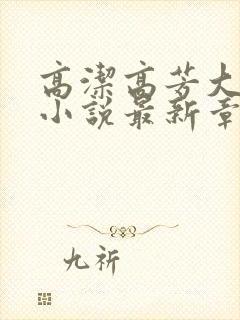 高潔高芳大
小說最新章
九祈